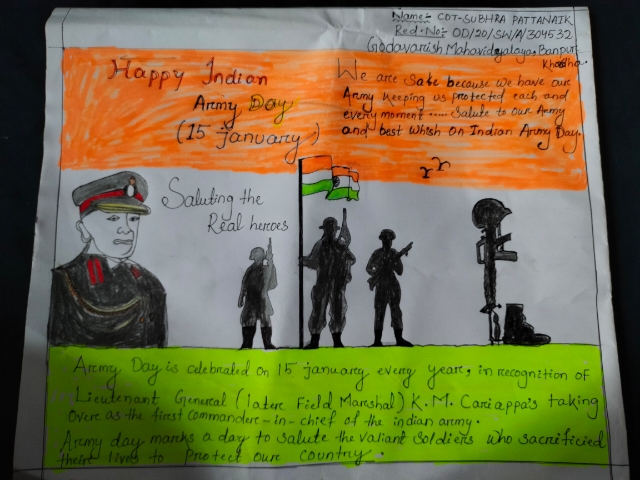 Name:- CDT-SUBHRA PATTANAIK
Red.No:- OD/20/SW/A/304532
Godavarish Mahavidyalaya, Banpur
Khordha.
Happy Indian
Army Day
(15 January)
We are Safe because we have our
Army Keeping us protected each and
every moment ..... Salute to our Army
and best Whish on Indian Army Day.
Saluting the
Real heroes
Army Day is celebrated on 15 january every year, in recognition of
Lieutenant General (later Field Marshal) K.M. Cariappa's taking
over as the first commander-in-chief of the indian army.
Army day marks a day to salute the valiant soldiers who sacrificied
their lives to Protect our country.